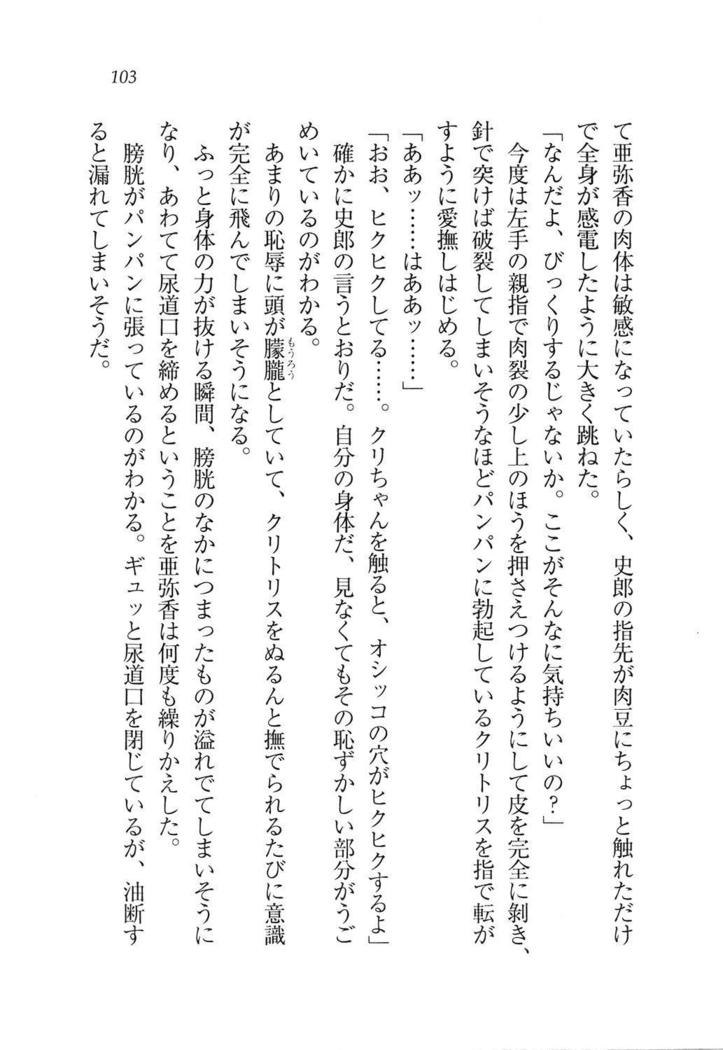 103
て亜弥香の肉体は敏感になっていたらしく、史郎の指先が肉豆にちょっと触れただけ
で全身が感電したように大きく跳ねた。
「なんだよ、びっくりするじゃないか。ここがそんなに気持ちいいの?」
今度は左手の親指で肉裂の少し上のほうを押さえつけるようにして皮を完全に剝き、
針で突けば破裂してしまいそうなほどパンパンに勃起しているクリトリスを指で転が
すように愛撫しはじめる。
「ああッ……はああッ……」
「おお、ヒクヒクしてる……。クリちゃんを触ると、オシッコの穴がヒクヒクするよ」
確かに史郎の言うとおりだ。自分の身体だ、見なくてもその恥ずかしい部分がうご
めいているのがわかる。
あまりの恥辱に頭が朦朧としていて、クリトリスをぬるんと撫でられるたびに意識
もうろう
が完全に飛んでしまいそうになる。
ふっと身体の力が抜ける瞬間、膀胱のなかにつまったものが溢れでてしまいそうに
なり、あわてて尿道口を締めるということを亜弥香は何度も繰りかえした。
膀胱がパンパンに張っているのがわかる。ギュッと尿道口を閉じているが、油断す
ると漏れてしまいそうだ。